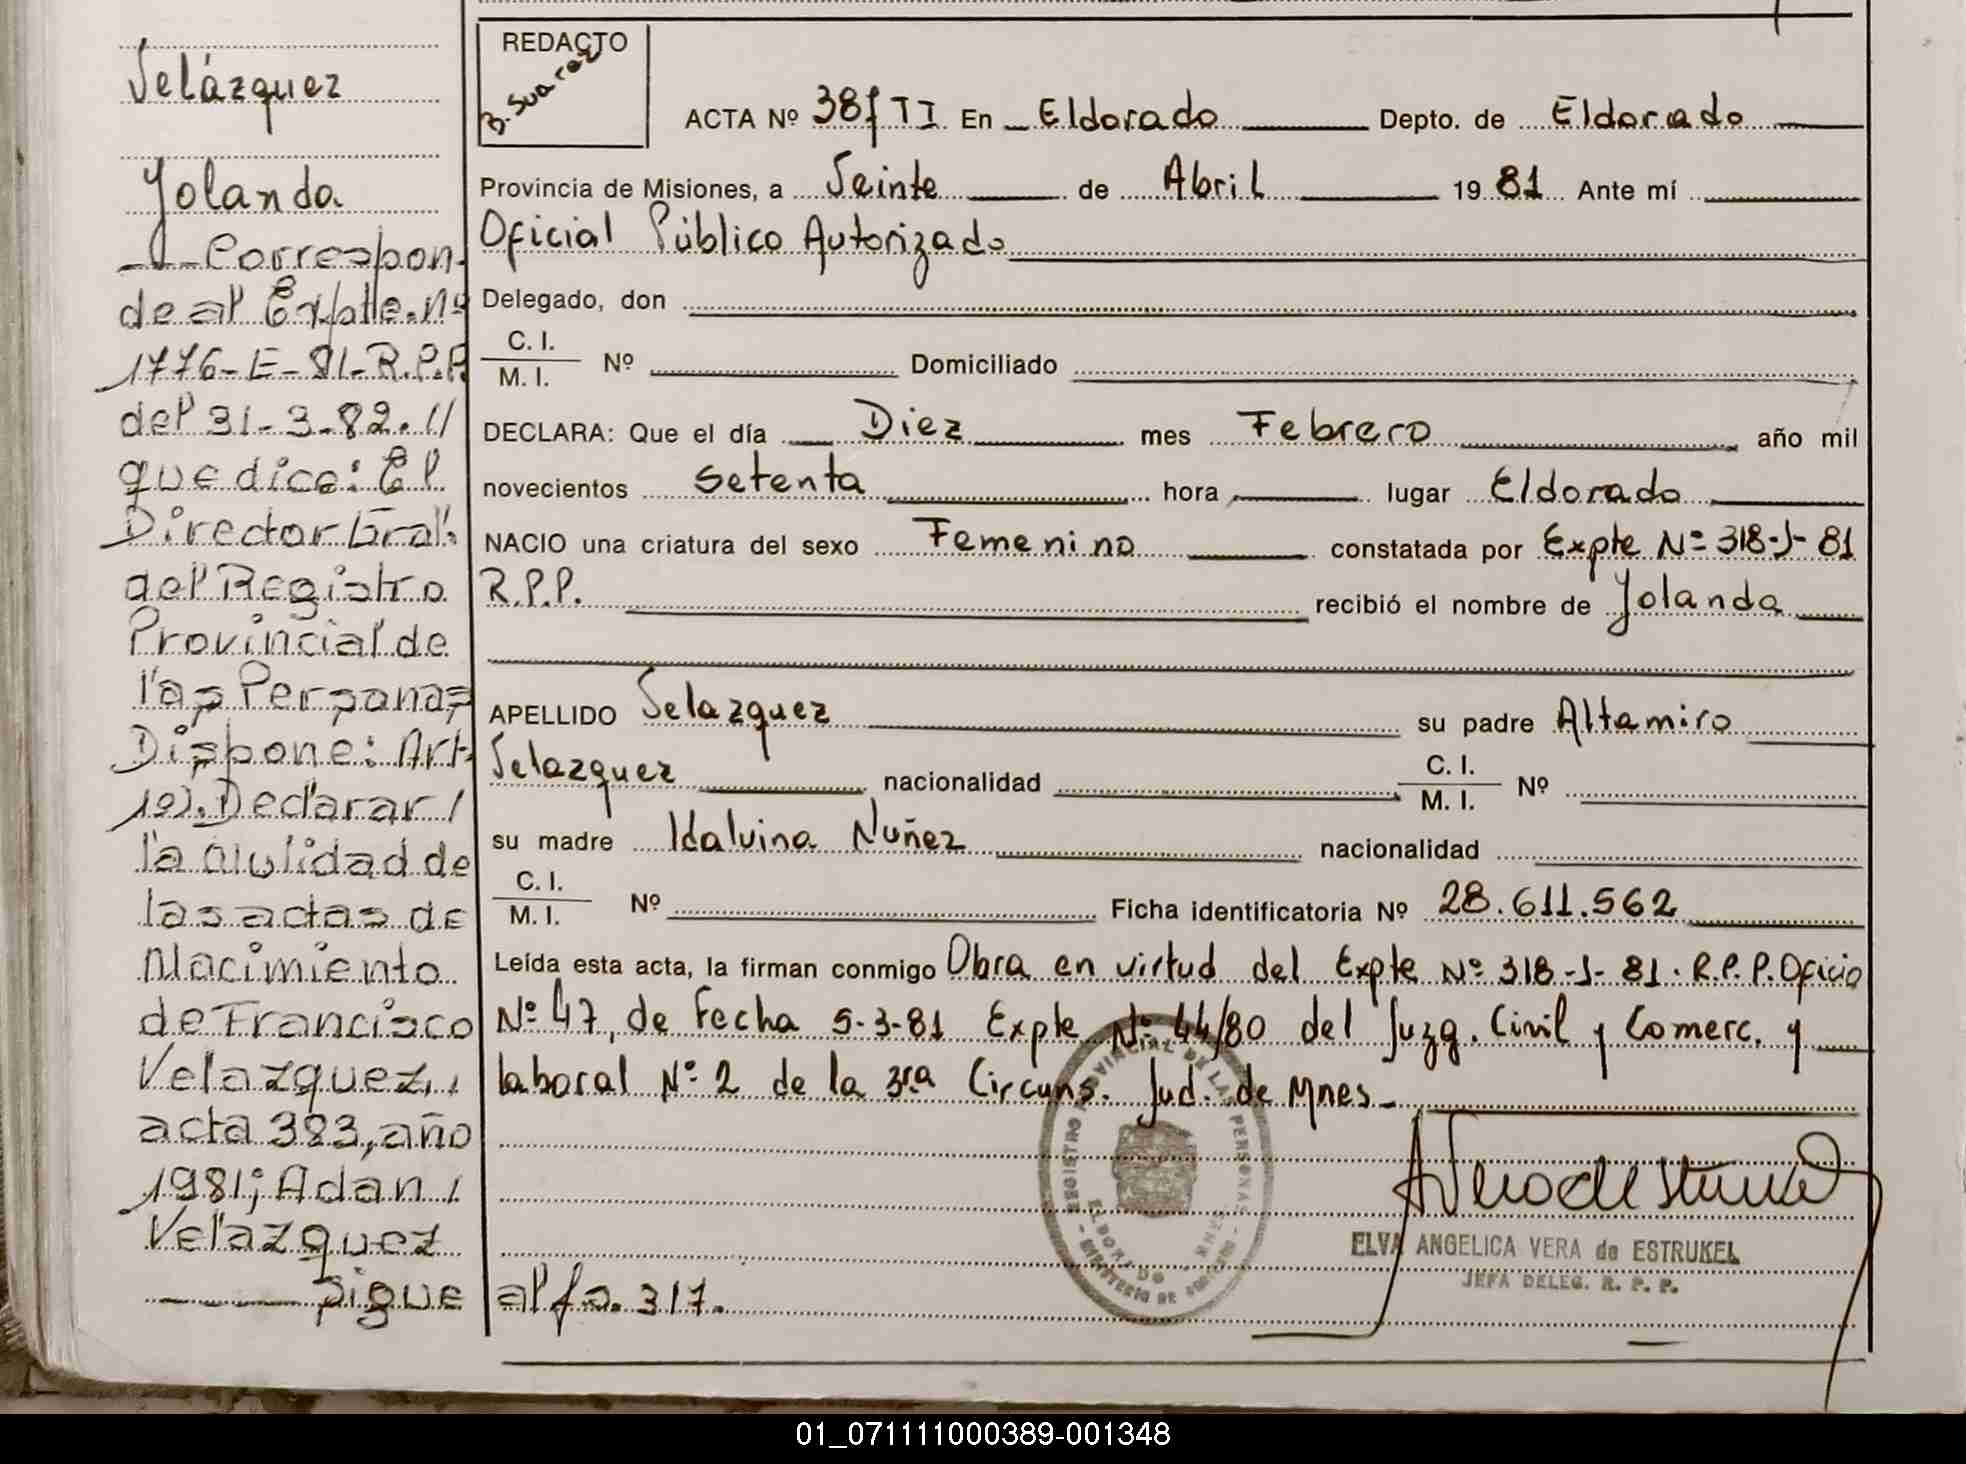 Velázquez
Yolanda
Correspon-
de al Expte. Nº
1776-E-81-R.P.P.
del 31-3-82.//
que dice: El
Director Gral.
del Registro
Provincial de
las Personas
Dispone: Art.
1º). Declarar /
la nulidad de
las actas de
Nacimiento
de Francisco
Velazquez,,
acta 383, año
1981; Adan /
Velazquez
sigue al fo. 317.
REDACTO
B. Suarez
ACTA Nº 381 TI En Eldorado Depto. de Eldorado
Provincia de Misiones, a Veinte de Abril 19 81 Ante mí
Oficial Público Autorizado
Delegado, don
C. I.
M. I. Nº Domiciliado
DECLARA: Que el día Diez mes Febrero año mil
novecientos setenta hora lugar Eldorado
NACIO una criatura del sexo Femenino constatada por Expte Nº 318-J-81
R.P.P. recibió el nombre de Yolanda
APELLIDO Velazquez su padre Altamiro
Velazquez nacionalidad C. I.
M. I. Nº
su madre Idalvina Nuñez nacionalidad
C. I.
M. I. Nº Ficha identificatoria Nº 28.611.562
Leída esta acta, la firman conmigo Obra en virtud del Expte Nº 318-J-81. R.P.P. Oficio
Nº 47, de Fecha 5-3-81 Expte Nº 44/80 del Juzg. Civil y Comerc. y
laboral Nº 2 de la 3ra Circuns. Jud. de Mnes-
REGISTRO PROVINCIAL DE LAS PERSONAS
ELDORADO
MINISTERIO DE GOBIERNO
ELVA ANGELICA VERA de ESTRUKEL
JEFA DELEG. R. P. P.
01_071111000389-001348